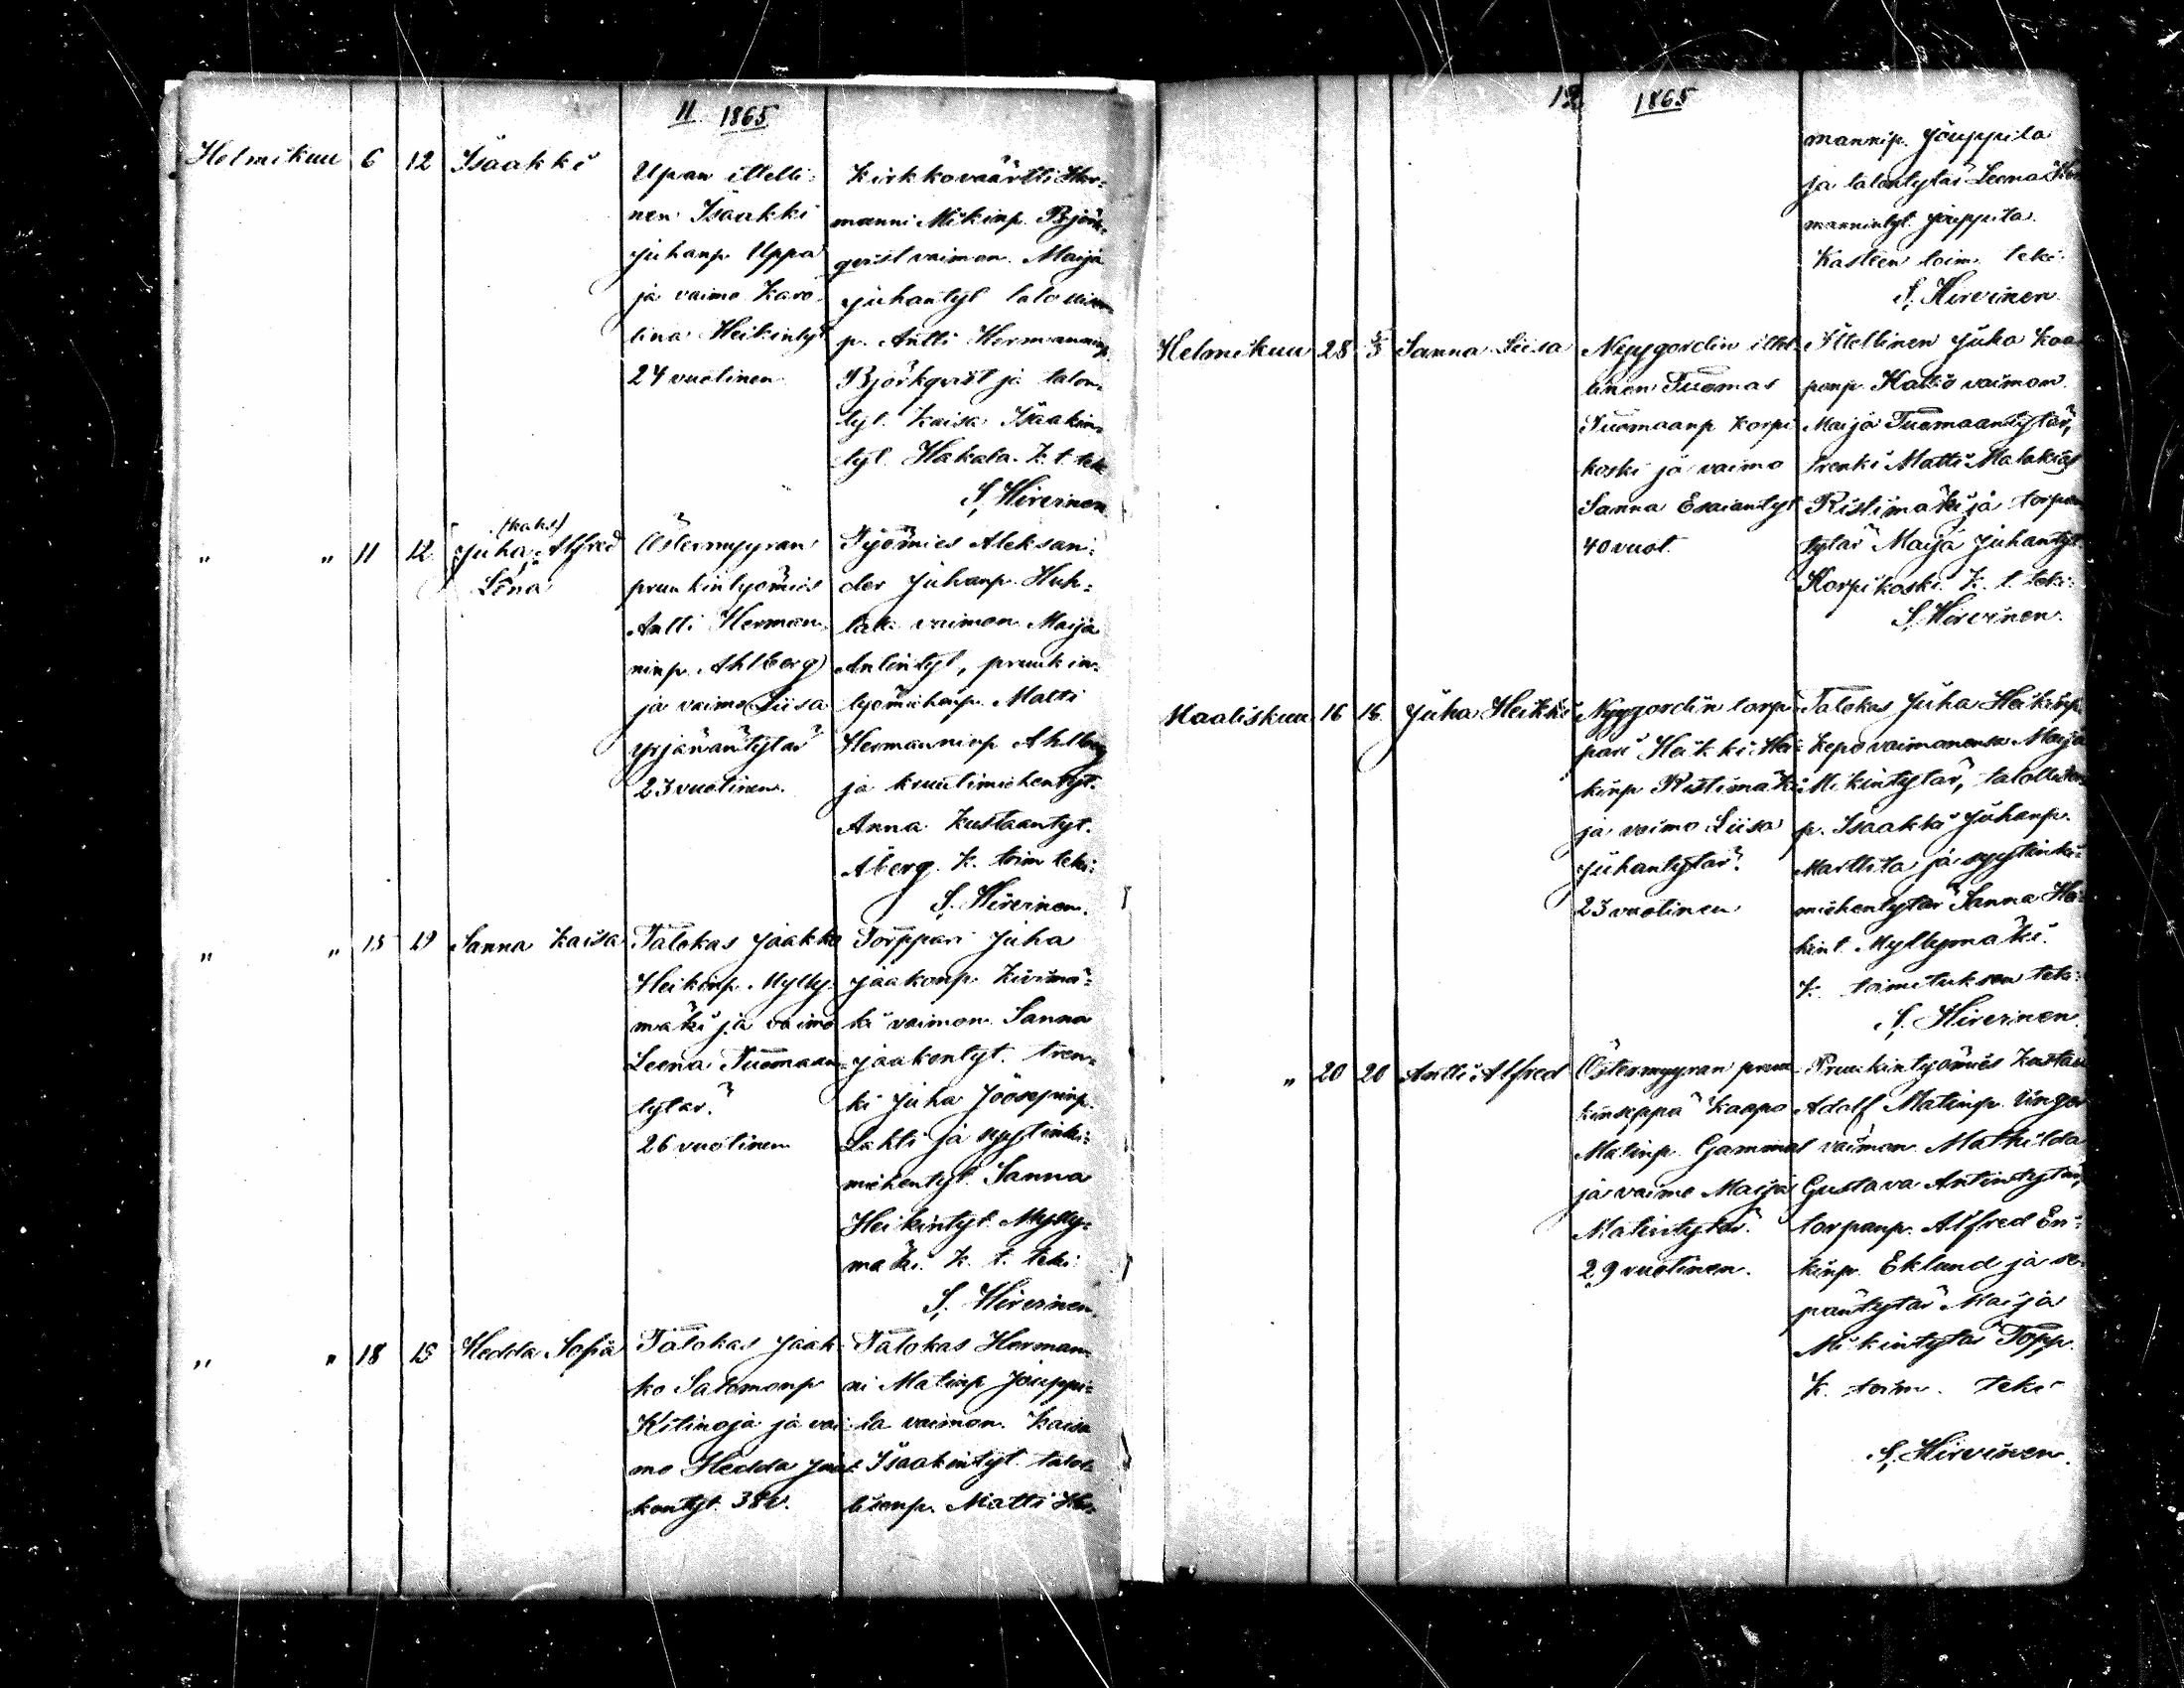 11 1865
Helmikuu 6 12 Isaakki
Upan itelli-
nen Isaakki
Juhanp. Uppa
ja vaimo Karo-
lina Heikintyt
24 vuotinen
Kirkkoväärtti Her-
manni Mikinp. Björk-
qvist vaimon. Maija
Juhantyt
p. Antti Hermanninp.
Björkqvist ja talon-
tyt. Kaisa Isaakin-
tyt. Hakala. K. t. teki
S. Hirvinen
" " 11 12 (kaks.)
Juha Alfred
Lena
Östermyyran
pruukintyömies
Antti Herman-
ninp. Ahlberg
ja vaimo Liisa
Yrjänäntytär
23 vuotinen.
Työmies Aleksan-
der Juhanp. Huh-
tak. vaimon Maija
Antintyt, pruukin-
työmiehenp. Matti
Hermanninp Ahlberg
ja kruutimiehentyt.
Anna Kustaantyt.
Åberg. K. toim teki:
S. Hirvinen.
" " 15 19 Sanna Kaisa
Talokas Jaakko
Heikinp. Mylly-
mäki ja vaimo
Leena Tuomaan-
tytär.
26 vuotinen
Torppari Juha
Jaakonp. Kivimä-
ki vaimon. Sanna
Jaakontyt. tren-
ki Juha Jöösepinp.
Lahti ja syytinki-
miehentyt. Sanna
Heikintyt. Mylly-
mäki. K. t. teki:
S. Hirvinen.
" " 18 19 Hedda Sofia
Talokas Jaak-
ko Salomonp
Kitinoja ja vai-
mo Hedda Jaak-
kontyt. 38 v.
Talokas Herman-
ni Matinp Jouppi-
la vaimon. Kaisa
Isaakintyt. talol-
lisenp. Matti Her-
12 1865
mannip. Jouppila
ja talontytär Leena Her-
mannintyt. Jouppila.
Kasteen toim. teki:
S. Hirvinen.
Helmikuu 28 5/3 Sanna Liisa
Nyygordin itel-
linen Tuomas
Tuomaanp Korpi-
koski ja vaimo
Sanna Esaiantyt
40 vuot.
Itellinen Juha Kaa-
ponp. Kallio vaimon.
Maija Tuomaantytär,
trenki Matti Malakiasp
Ristimäki ja torpan
tytär Maija Juhantyt.
Korpikoski. K. t. teki:
S. Hirvinen.
Maaliskuu 16 18 Juha Heikki
Nyygordin torp-
pari Heikki Hei-
kinp Ristimäki
ja vaimo Liisa
Juhantytär.
23 vuotinen
Talokas Juha Heikinp.
Kepo vaimonensa Maija
Mikintytär, talollisen
p. Isaakki Juhanp.
Marttila ja syytinki-
miehentytär Sanna Hei-
kint. Myllymäki.
K. toimituksen teki:
S. Hirvinen
" 20 20 Antti Alfred
Östermyyran pruu-
kinseppä Kaapo
Matinp. Gammal
ja vaimo Maija
Matintytär.
29 vuotinen.
Pruukintyömies Kustaa
Adolf Matinp. Unger
vaimon. Mathilda
Gustava Antintytär,
torpanp. Alfred Eri-
kinp. Eklund ja se-
päntytär Maija
Mikintytär Topp.
K. toim. teki
S. Hirvinen.